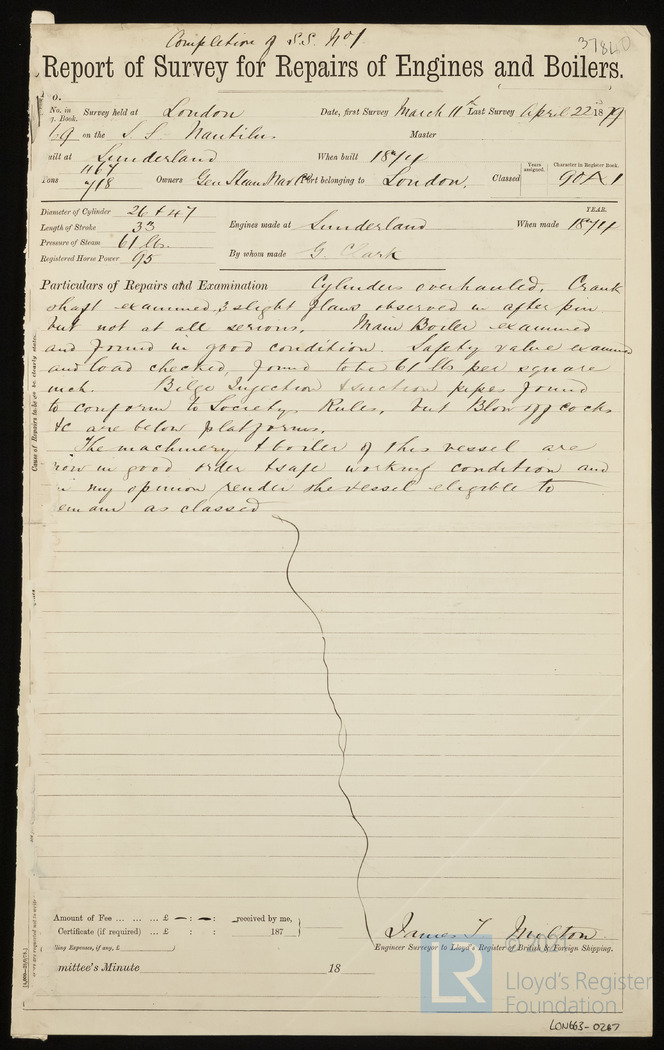 Completion of S.S. No 1
37840
Report of Survey for Repairs of Engines and Boilers.
o.
No. in
g. Book. Survey held at London Date, first Survey March 11th Last Survey April 22 1879
on the S S Nautilus Master
uilt at Sunderland When built 1874
467
Tons 718 Owners Gen Steam Nav Co Port belonging to London. Classed Years assigned. Character in Register Book. 90 A 1
Diameter of Cylinder 26 & 47
Length of Stroke 33
Pressure of Steam 61 lbs.
Registered Horse Power 95
Engines made at Sunderland When made YEAR. 1874
By whom made G. Clark
Particulars of Repairs and Examination Cylinders overhauled. Crank
shaft examined, 3 slight flaws observed in after pin
but not at all serious. Main Boiler examined
and found in good condition. Safety valve examined
and load checked, found to be 61 lbs per square
inch. Bilge Injection & suction pipes found
to conform to Society's Rules, but Blow off cocks
&c are below platforms.
The machinery & boiler of this vessel are
now in good order & safe working condition and
in my opinion render the vessel eligible to
emain as classed
Cause of Repairs to be clearly stated.
Amount of Fee ... ... ... £ – : – : received by me,
Certificate (if required) ... £ : : 187
lling Expenses, if any, £
James T Milton
Engineer Surveyor to Lloyd's Register of British & Foreign Shipping.
mittee's Minute 18
LR
Lloyd's Register
Foundation
LON663-0267